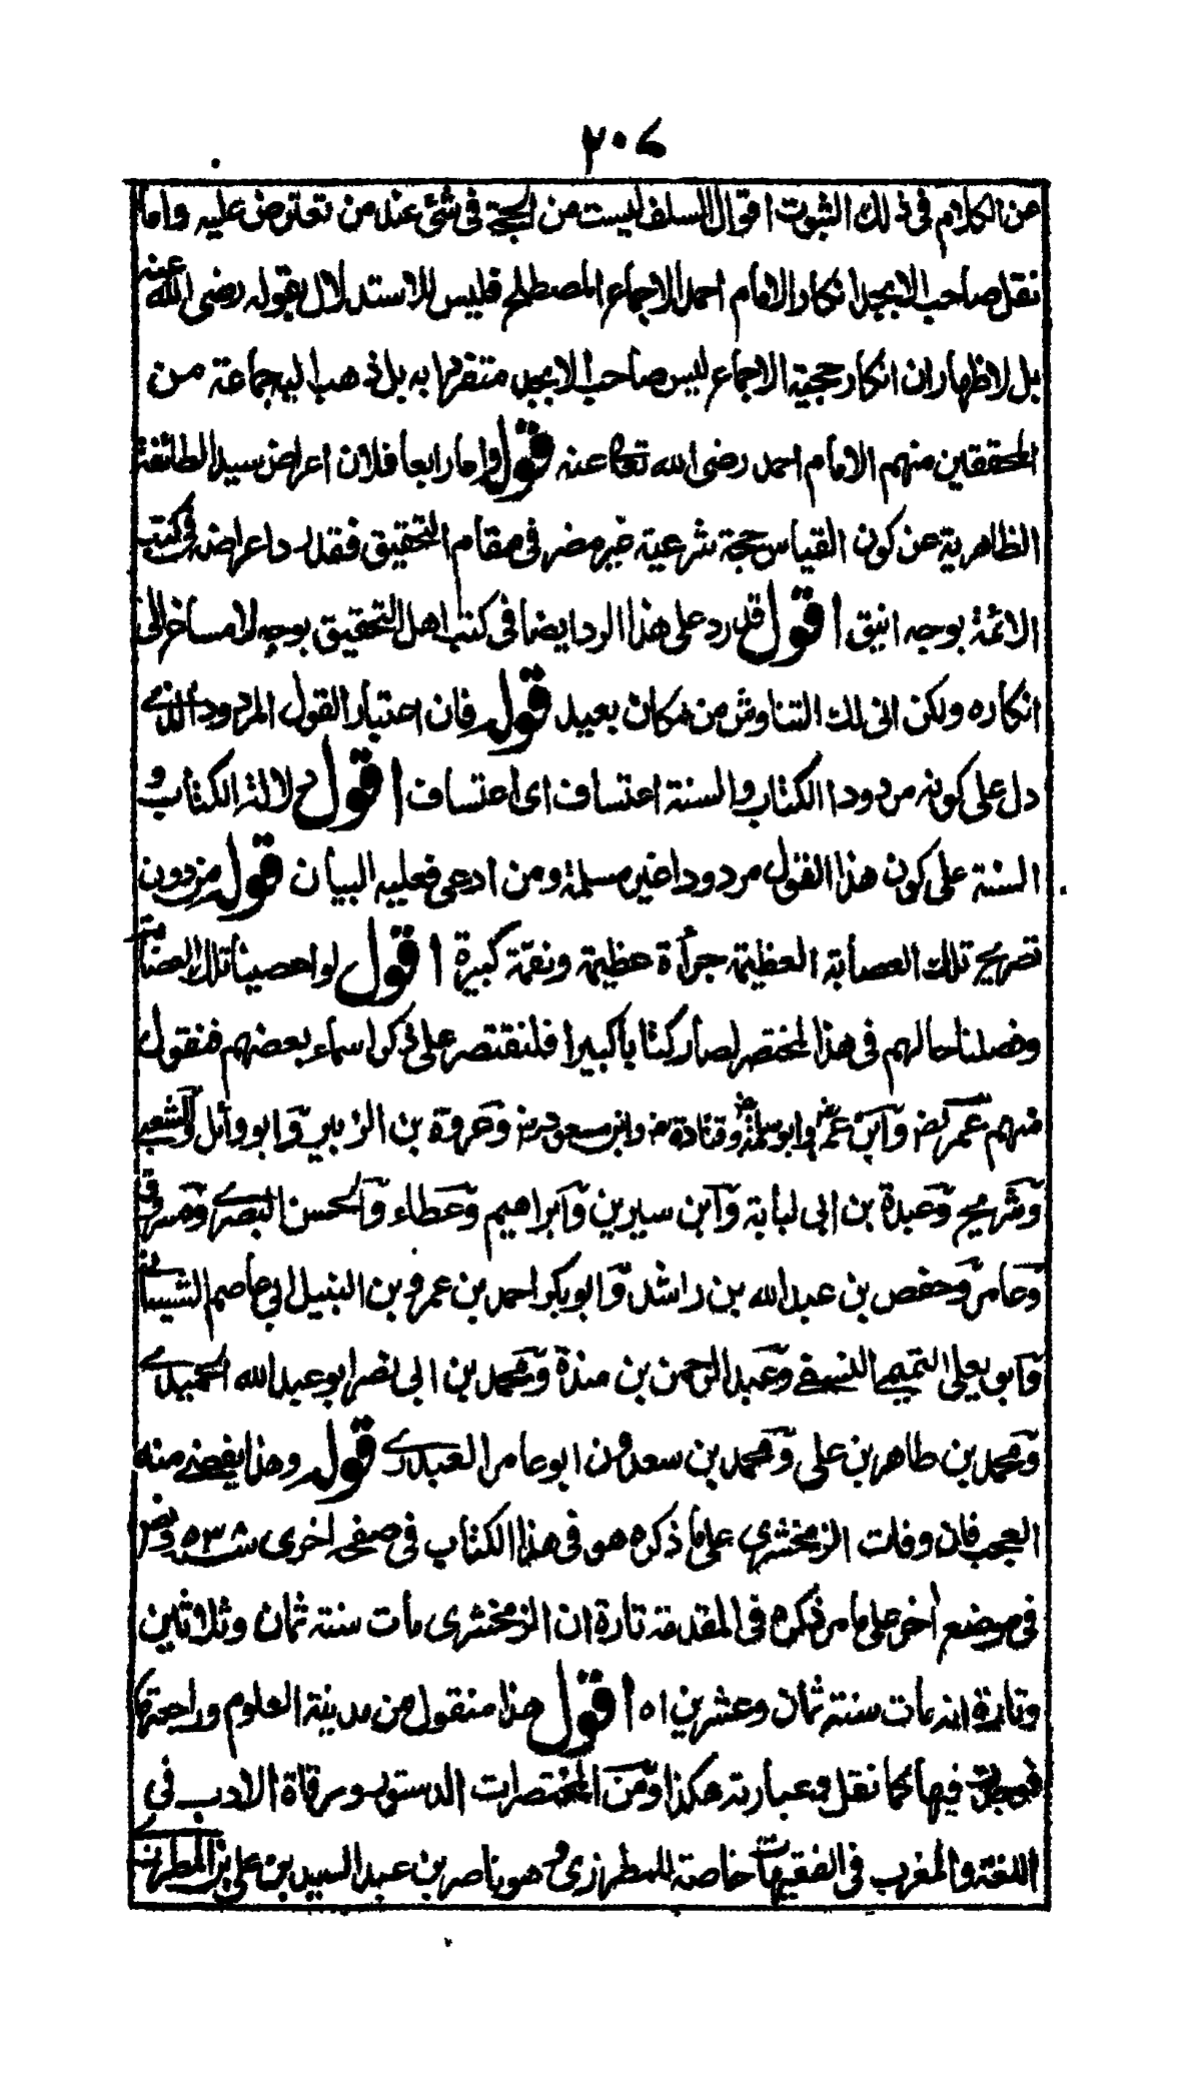 ٢٠٤
من الكلام في ذلك الثبوت اقوال السلف ليست من الحجة في شئ عند من تعترض عليه واما
نقل صاحب الابجد انكار الامام احمد الاجماع المصطلح فليس للاستدلال بقوله رضى الله عنه
بل لاظهار ان انكار حجية الاجماع ليس صاحب الابجد متفردا به بل ذهب اليه جماعة من
المحققين منهم الامام احمد رضى الله تعالى عنه قوله واما رابعا فلان اعراض سيد الطائفة
الظاهرية عن كون القياس حجة شرعية غير مضر في مقام التحقيق فقد رد اعراضه في كتب
الائمة بوجه انيق اقول قد رد على هذا الرد ايضا في كتب اهل التحقيق بوجه لا مساغ الى
انكاره ولكن انى لك التناوش من مكان بعيد قوله فان اختيار القول المردود الذي
دل على كونه مردودا الكتاب والسنة اعتساف اى اعتساف اقول دلالة الكتاب و
السنة على كون هذا القول مردودا غير مسلمة ومن ادعى فعليه البيان قوله من دون
تصريح تلك العصابة العظيمة جرأة عظيمة ونقمة كبيرة اقول لو احصينا تلك العصابة
وفصلنا حالهم في هذا المختصر لصار كتابا كبيرا فلنقتصر على ذكر اسماء بعضهم فنقول
منهم عمر رض وابن عمر رض وابو سلمة رض وقتادة رض وابن مسعود رض وعروة بن الزبير وابو وائل والشعبي
وشريح وعبدة بن ابى لبابة وابن سيرين وابراهيم وعطاء والحسن البصري ومسروق
وعامر وحفص بن عبد الله بن راشد وابو بكر احمد بن عمرو بن النبيل ابى عاصم الشيباني
وابو يعلى التميمي النسفي وعبد الرحمن بن مندة ومحمد بن ابى نصر ابو عبد الله الحميدي
ومحمد بن طاهر بن على ومحمد بن سعدون ابو عامر العبدري قوله وهذا يقضي منه
العجب فان وفات الزمخشري على ما ذكره هو في هذا الكتاب في صفحه اخرى سنة ٥٣٨ ونص
في موضع اخر على ما مر ذكره في المقدمة تارة ان الزمخشرى مات سنة ثمان وثلاثين
وتارة انه مات سنة ثمان وعشرين اه اقول هذا منقول من مدينة العلوم وراجعتها
فوجدت فيها كما نقل وعبارته هكذا ومن المختصرات الدستور ومرقاة الادب في
اللغة والمغرب في الفقهيات خاصة للمطرزي وهو ناصر بن عبد السيد بن علي بن المطرزي